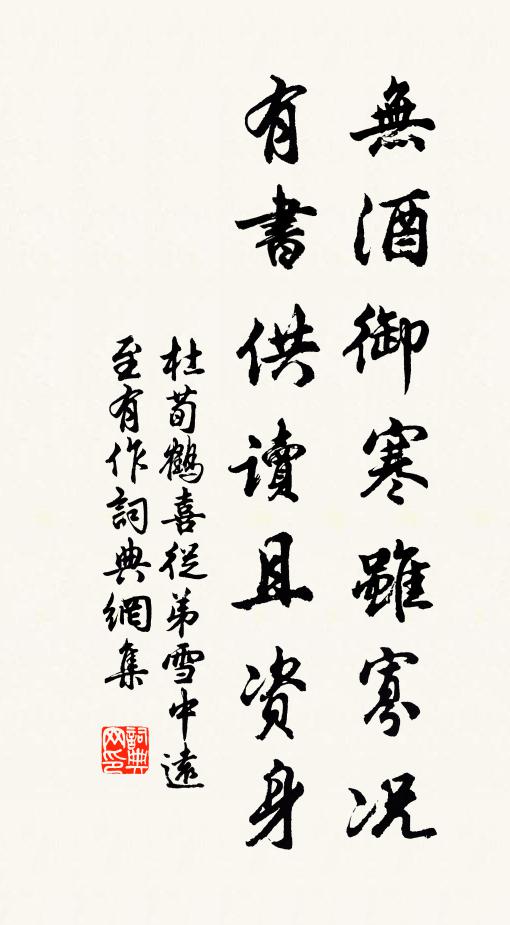 無酒御寒雖寡況
有書供讀且資身
杜荀鶴喜從弟雪中遠
至有作詞典網集
詞典网印